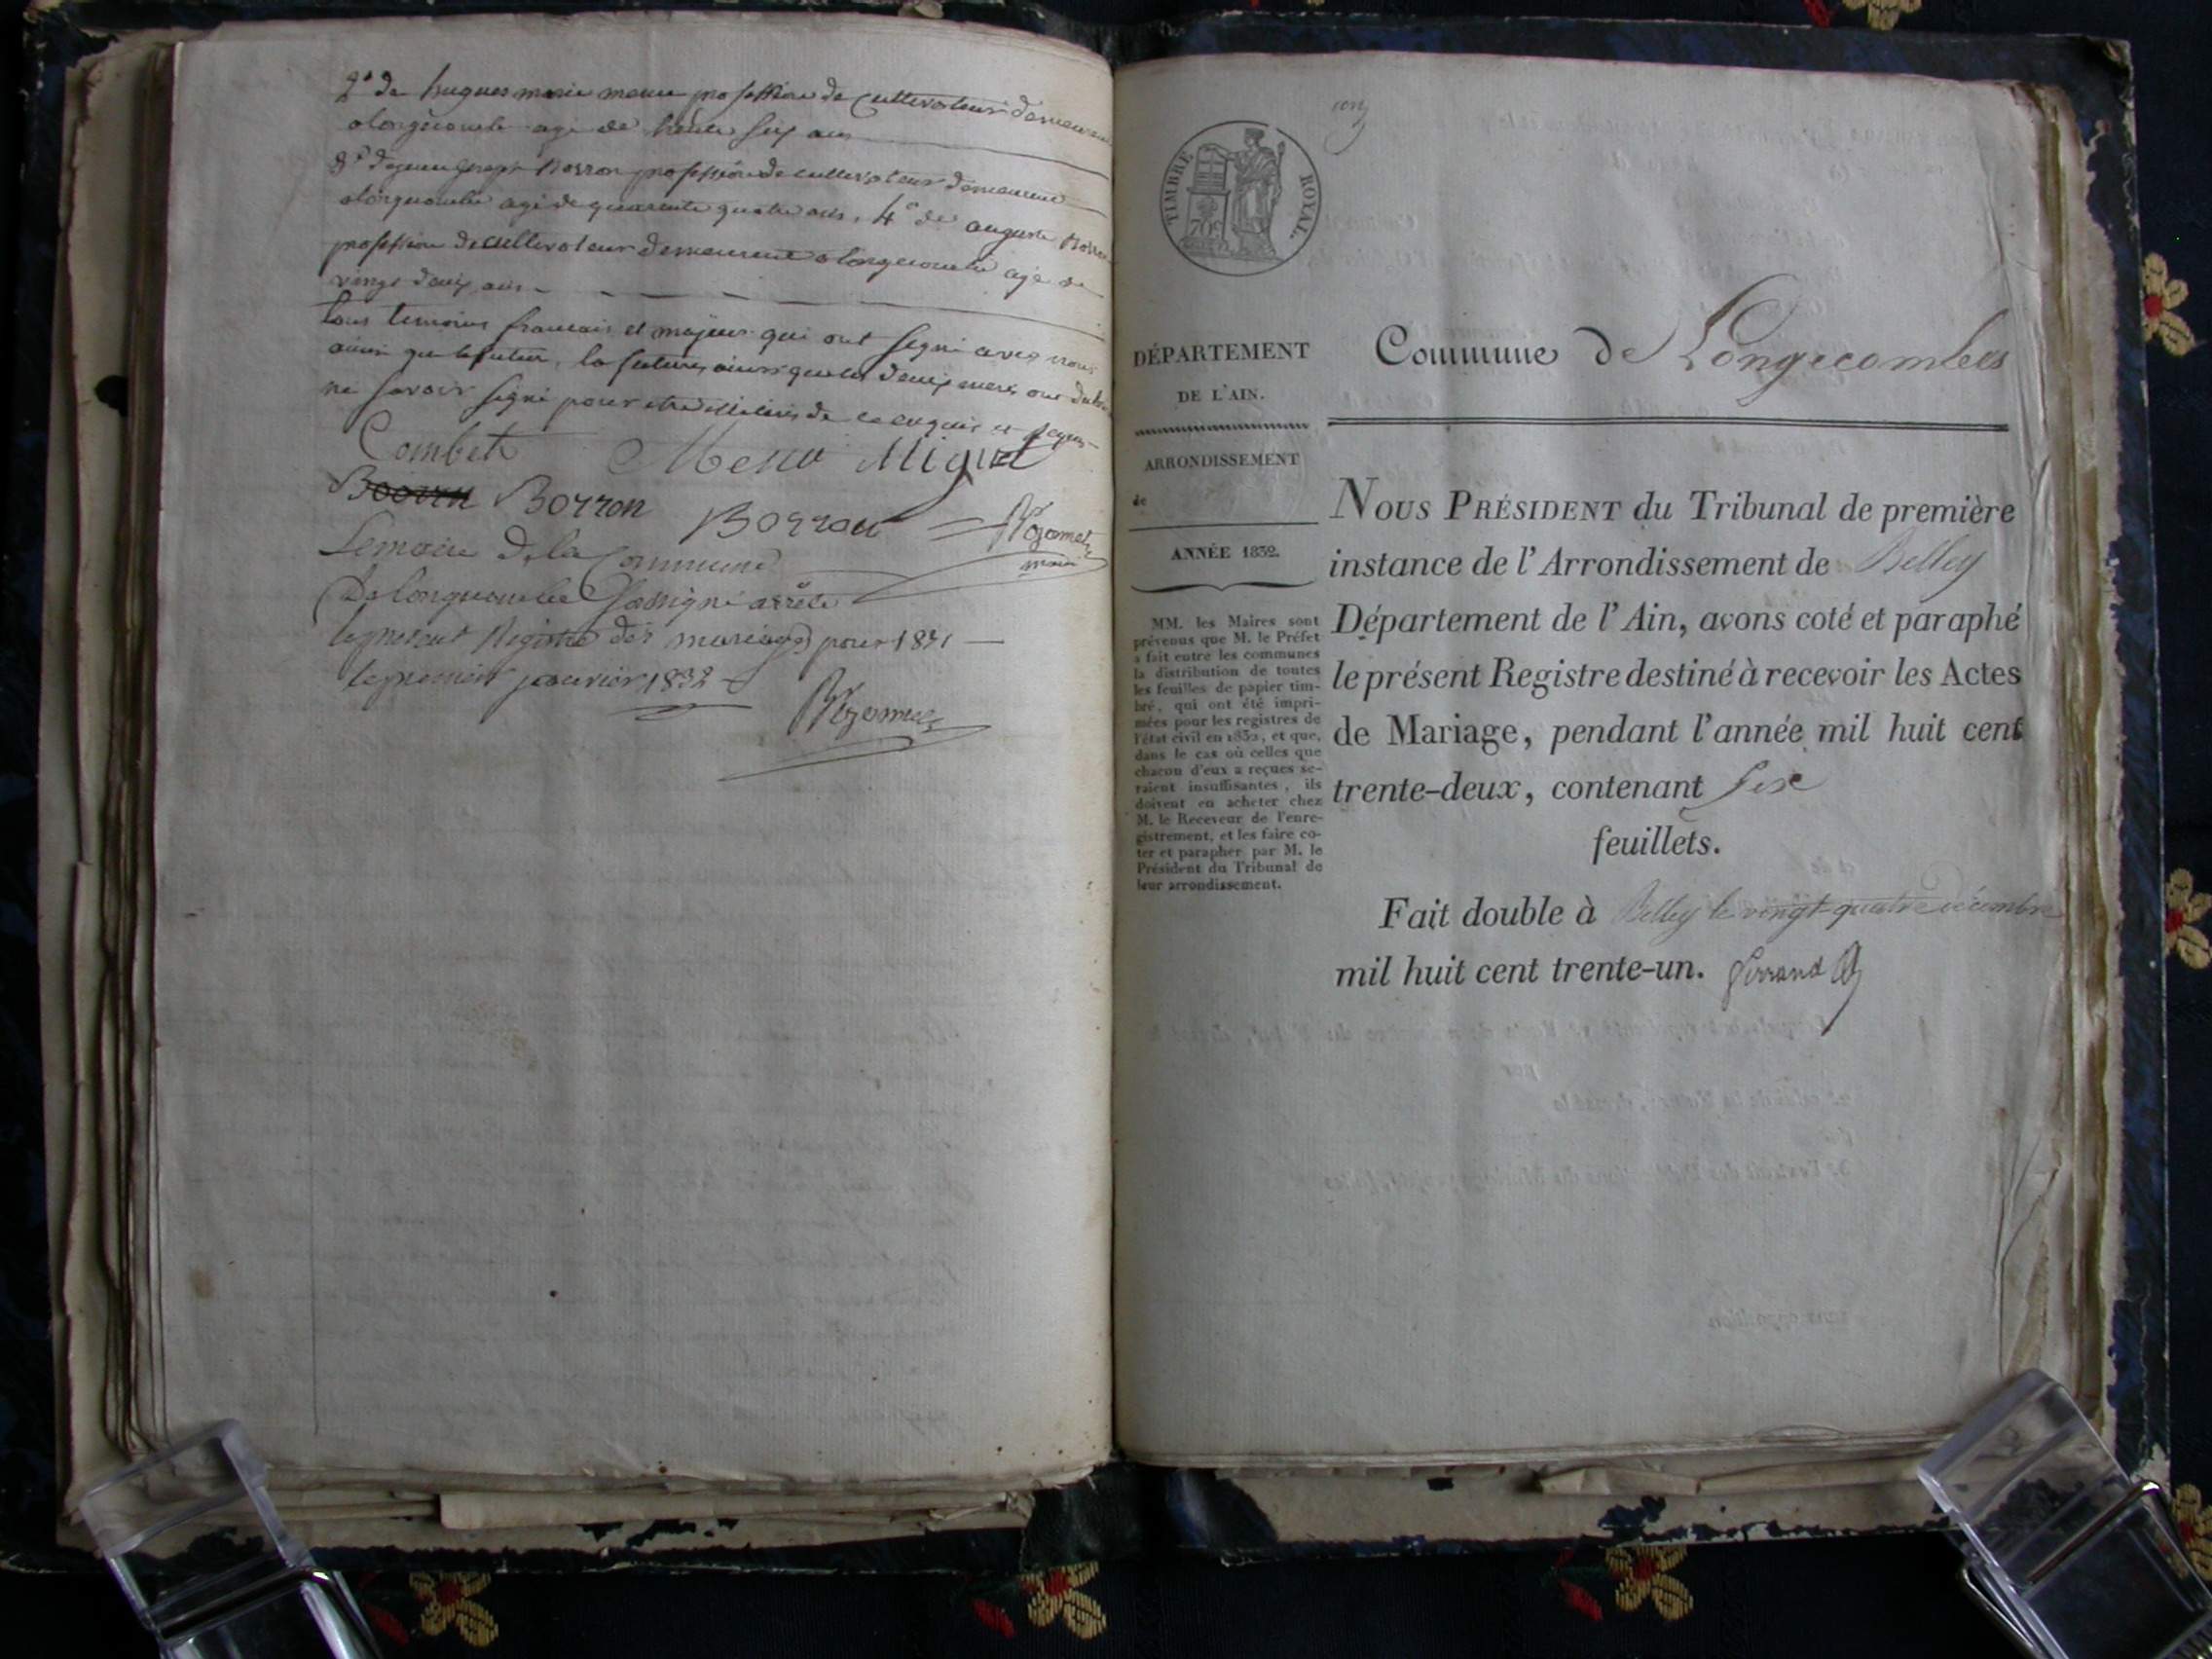 2° de hugues marie menu profession de Cultivateur demeurant
a longecombe agé de trente six ans
3° de jean joseph Borron profession de cultivateur demeurant
a longecombe agé de quarente quatre ans, 4° de auguste Borron
profession de cultivateur demeurant a longecombe agé de
vingt deux ans
tous temoins francais et majeurs qui ont signé avec nous
ainsi que le futur, la future, ainsi que les deux meres ont
ne savoir signé pour de ce enquis et
Combet Menu Miguet
Borron Borron
maire
Le maire de la Commune
De longecombe Soussigné arrête
le present Registre des mariages pour 1831
le premier janvier 1832
TIMBRE ROYAL.
DÉPARTEMENT
DE L'AIN.
ARRONDISSEMENT
de
ANNÉE 1832.
MM. les Maires sont
prévenus que M. le Préfet
a fait entre les communes
la distribution de toutes
les feuilles de papier tim-
bré, qui ont été impri-
mées pour les registres de
l'état civil en 1832, et que,
dans le cas où celles que
chacun d'eux a reçues se-
raient insuffisantes, ils
doivent en acheter chez
M. le Receveur de l'enre-
gistrement, et les faire co-
ter et parapher par M. le
Président du Tribunal de
leur arrondissement.
Commune de Longecombes
NOUS PRÉSIDENT du Tribunal de première
instance de l'Arrondissement de Belley
Département de l'Ain, avons coté et paraphé
le présent Registre destiné à recevoir les Actes
de Mariage, pendant l'année mil huit cent
trente-deux, contenant Six
feuillets.
Fait double à Belley le vingt quatre décembre
mil huit cent trente-un. Ferrand